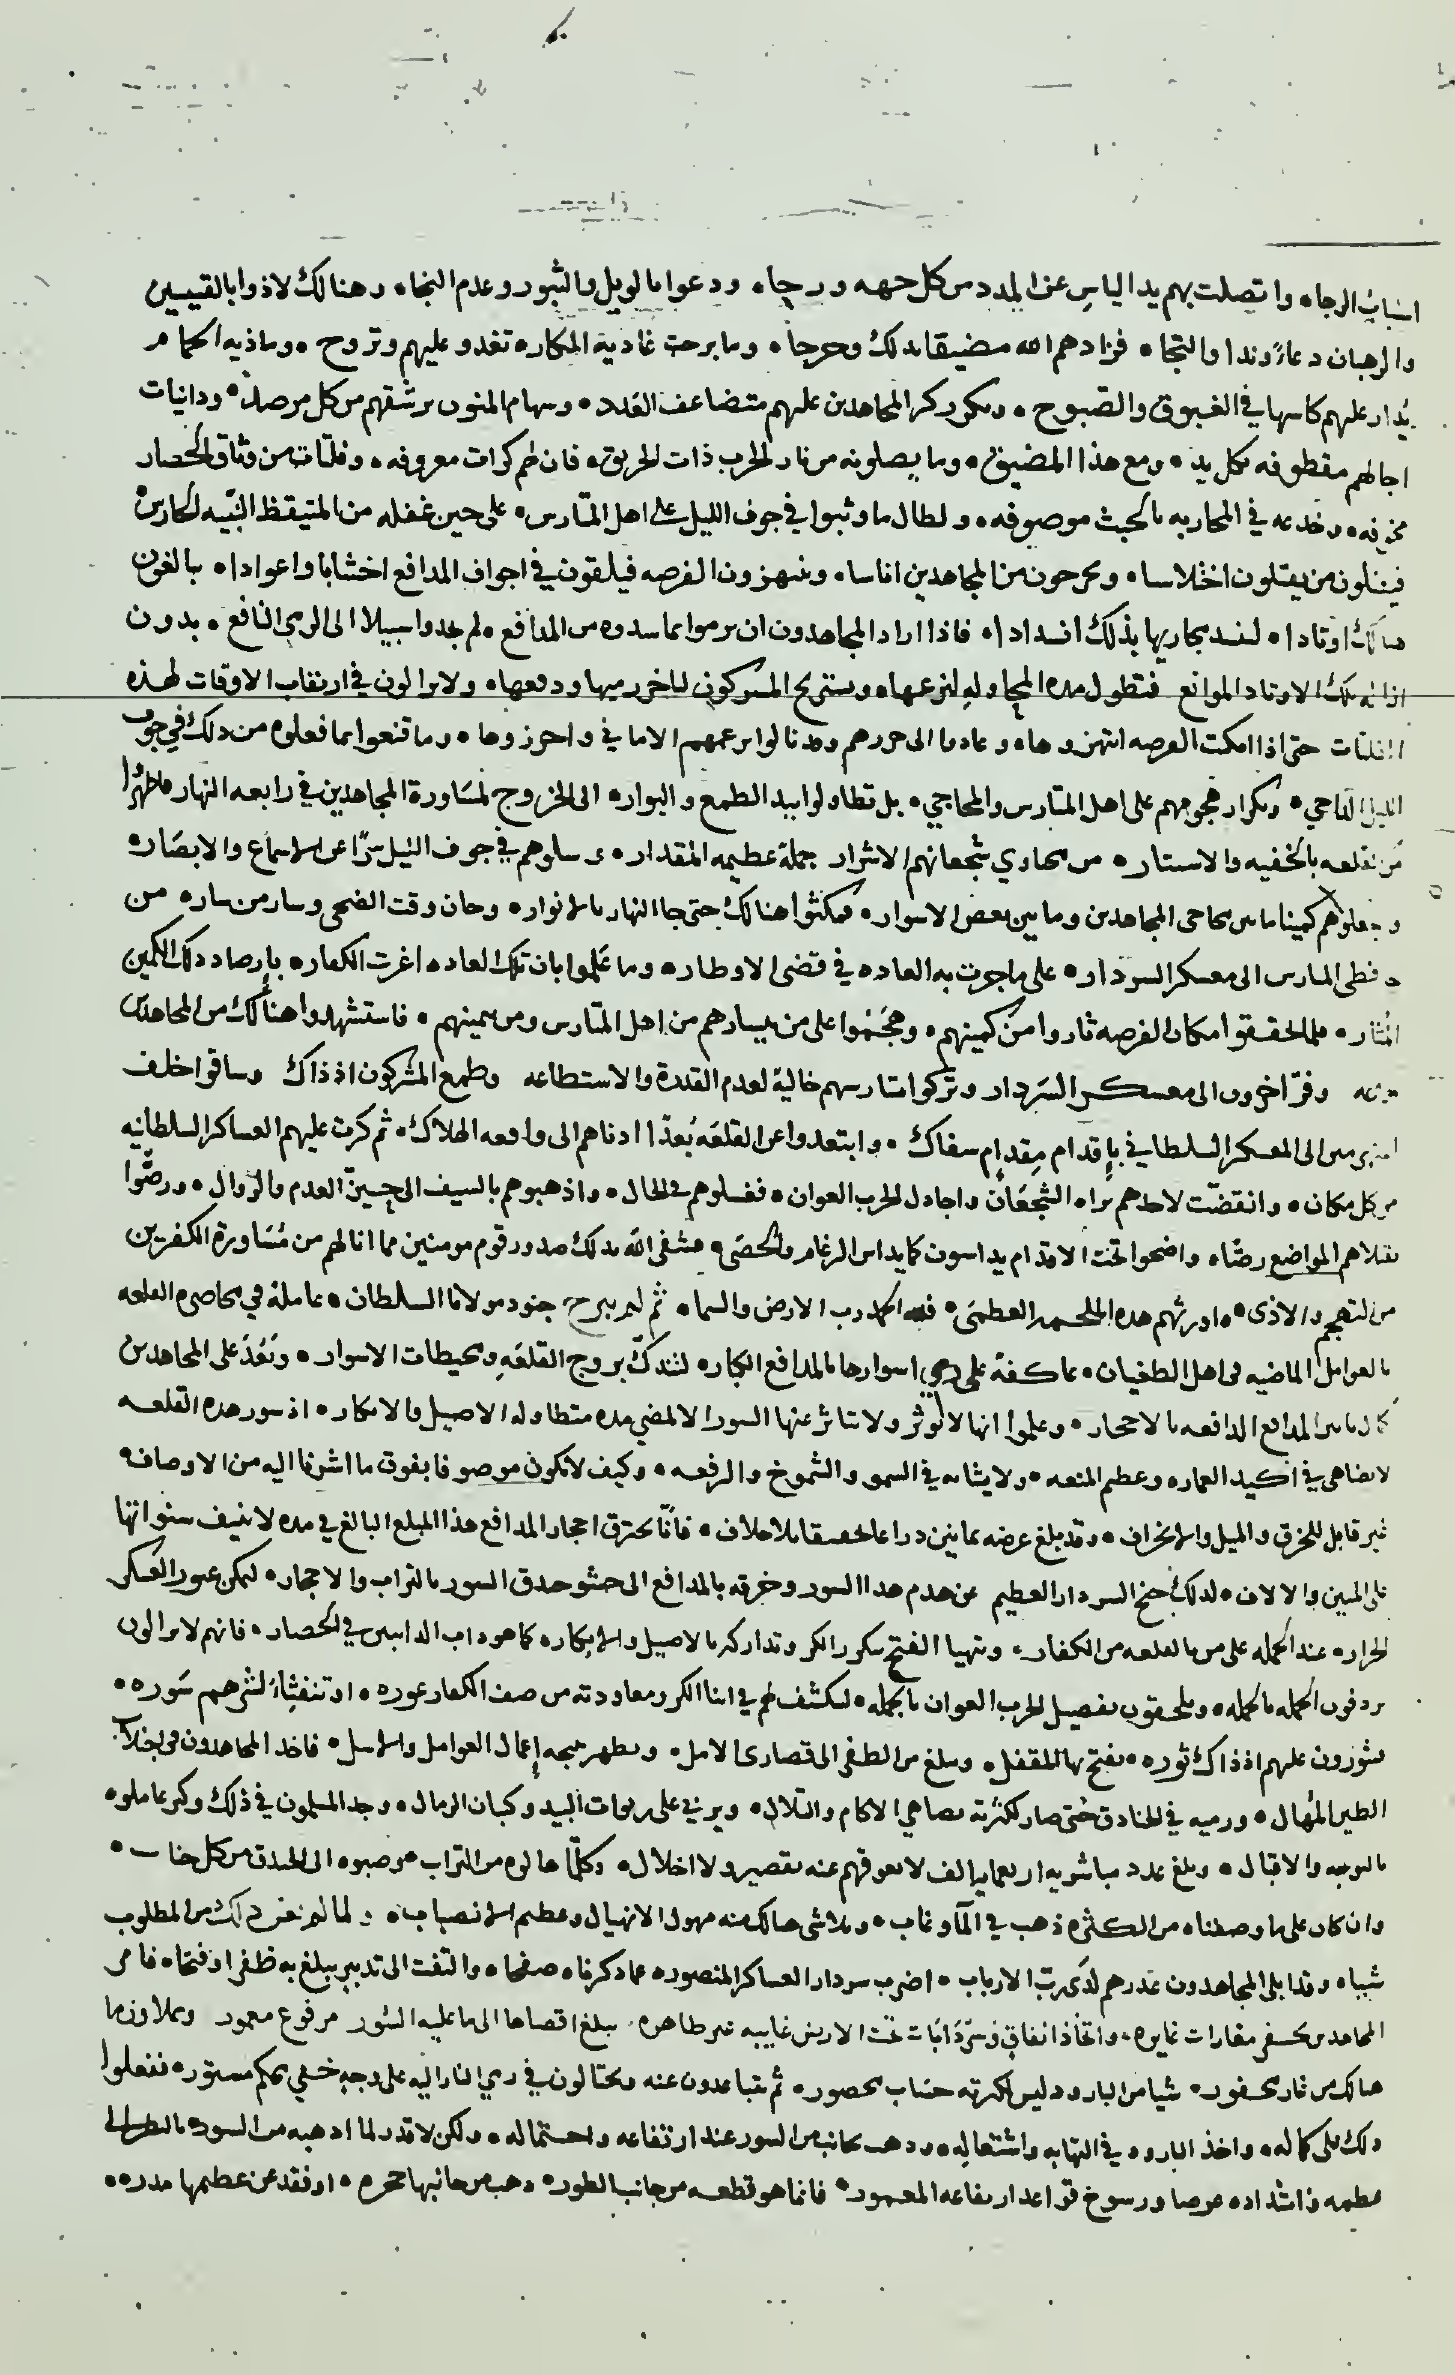 اسباب الرجاه واتصلت بهم يد الياس عن المدد من كل جهه ورجاه ودعوا بالويل والثبور وعدم النجاه وهنالك لاذوا بالقسيسين
والرهبان دعاءً وندا والتجاه فزادهم الله مضيقا بذلك وحرجاه وما برحت غادية المكاره تغدو عليهم وتروح وماذيه الحمام
يُدار عليهم كاسها في الغبوق والصبوح وتكرر كر المجاهدين عليهم متضاعف العدد وسهام المنون ترشقهم من كل مرصد ودانيات
اجالهم مقطوفه بكل يد ومع هذا المضيق وما يصلونه من نار الحرب ذات الحريق فان لهم كرات معروفه وفلتات من وثاق الحصار
مخوفه وخدعه في المحاربه بالخبث موصوفه ولطال ما وثبوا في جوف الليل على اهل المتارس على حين غفله من المتيقظ النبيه الحارس
فينلون من يقتلون اختلاسا ويجرحون من المجاهدين اناسا وينتهزون الفرصه فيلقون في اجواف المدافع اخشابا واعوادا بالغون
هنالك اوتادا لتسد مجاريها بذلك انسدادا فاذا اراد المجاهدون ان يرموا بما سدوه من المدافع لم يجدوا سبيلا الى الرمي النافع بدون
ازاله تلك الاوتاد الموانع فتطول مده المحاوله لنزعها ويستريح المشركون لتاخر رميها ودفعها ولا يزالون في ارتقاب الاوقات لهذه
الفلتات حتى اذا امكنت الفرصه انتهزوها وعادوا الى حررهم وقد نالوا بزعمهم الاماني واحرزوها وما قنعوا بما فعلوه من ذلك في جوف
الليل الداجي وتكرار هجومهم على اهل المتارس والمحاجي بل تطاولوا بيد الطمع والبوار الى الخروج لمساورة المجاهدين في رابعه النهار فاظهروا
من القلعه بالخفيه والاستتار من مجاوي شجعانهم الاشرار جملة عظيمه المقدار وارسلوهم في جوف الليل سرًا عن الاسماع والابصار
وجعلوهم كمينا ما بين محاجي المجاهدين وما بين بعض الاسوار فمكثوا هنالك حتى جا النهار بالانوار وحان وقت الضحى وسار من سار من
حفظى المتارس الى معسكر السردار على ما جرت به العاده في قضى الاوطار وما علموا بان تلك العاده اغرت الكفار بارصاد ذلك الكمين
المثار فلما تحققوا امكان الفرصه ثاروا من كمينهم وهجموا على من بيسارهم من اهل المتارس ومن بيمينهم فاستشهدوا هنالك من المجاهدين
وفرّ اخرون الى معسكر السردار وتركوا متارسهم خالية لعدم القدرة والاستطاعه وطمع المشركون اذ ذاك وساقوا خلف
المنهزمين الى المعسكر السلطاني باقدام مقدام سفاك وابتعدوا عن القلعه بُعدًا ادناهم الى واقعه الهلاك ثم كرت عليهم العساكر السلطانيه
من كل مكان وانقضت لاخذهم بزاه الشجعان واجادل الحرب العوان فغسلوهم في الحال واذهبوهم بالسيف الى حيز العدم والزوال ورضّوا
بقتلاهم المواضع رضًا واضحوا تحت الاقدام يداسون كما يداس الرغام والحصى فشفى الله بذلك صدور قوم مومنين مما انالهم من مساورة الكفرين
من التهجم والاذى واورثهم هذه الملحمه العظمى فلله الحمد رب الارض والسما ثم لم يبرح جنود مولانا السلطان عاملة في محاصره القلعه
بالعوامل الماضيه في اهل الطغيان عاكفة على رمي اسوارها بالمدافع الكبار لتدك بروج القلعه ومحيطات الاسوار وتعذر على المجاهدين
المدافع الدافعه بالاحجار وعلموا انها لا توثر ولا يتاثر عنها السور الا لمضي مده متطاوله الاصيل والابكار اذ سور هذه القلعه
لا يضاهى في اكيد العماره وعظيم المنعه ولا يشابه في السمو والشموخ والرفعه وكيف لا يكون موصوفا بفوق ما اشرنا اليه من الاوصاف
غير قابل للخرق والميل والانحراف وقد بلغ عرضه ثمانين ذراعا محققا بلا خلاف فانّا تخترق احجار المدافع هذا المبلغ البالغ في مده لا نيف سنواتها
على المين والالاف لذلك جنح السردار العظيم عن هدم هذا السور وخرقه بالمدافع الى حشو خندق السور بالتراب والاحجار ليمكن عبور العسكر
الجرار عند الحمله على من بالقلعه من الكفار ويتهيا الفتح بتكرر الكر وتداركه بالاصيل والابكار كما هو داب الدابين في الحصار فانهم لا يزالون
يردفون الحمله بالحمله ويلحقون تفصيل الحرب العوان بالجمله لينكشف لهم في اثنا الكر ومعاودته من صف الكفار عوره او تنفثا لشرهم سوره
يثورون عليهم اذ ذاك ثوره يفتح بها المقفل ويبلغ من الظفر الى قصارى الامل ويظهر نتيجه اعمال العوامل والاسل فاخذ المجاهدون في اجلاب
الطين المُهال ورميه في الخنادق حتى صار لكثرته يضاهي الاكام والتلال ويربي على ربوات البيد وكثبان الرمال وجد المسلمون في ذلك وكبر عاملوه
بالتوجه والاقبال وبلغ عدد مباشريه اربعمايه الف لا يعوقهم عنه تقصير ولا اخلال وكلّما هالوه من التراب وصبوه الى الخندق من كل جناب
وان كان على ما وصفناه من الكثره ذهب في المآ وغاب وتلاشى هنالك منه مهول الانهيال وعظيم الانصباب ولما لم يغن ذلك من المطلوب
شيا وقد ابلى المجاهدون عذرهم لدى رب الارباب اضرب سردار العساكر المنصوره عما ذكرناه صفحا والتفت الى تدبير يبلغ به ظفرا وفتحا فامر
المجاهدين بحفر مغارات غايره واتخاذ انفاق وسردابات تحت الارض غايبه غير ظاهره يبلغ اقصاها الى ما عليه السور مرفوع معمور ويملا وزها
هنالك من غار محفور شيا من البارود ليس لكثرته حساب محصور ثم يتباعدون عنه ويحتالون في رمي النار اليه على وجه خفي محكم مستور ففعلوا
ذلك على كماله واخذ البارود في التهابه واشتعاله وذهب بجانب من السور عند ارتفاعه واحتماله ولكن لا قدر لما اذهبه من السور بالنظر الى
عظمه واشتداده عرضا ورسوخ قواعد ارتفاعه المعمور فانما هو قطعه من جانب الطور ذهب من جانبها حجره او فقد من عظيمها مدره